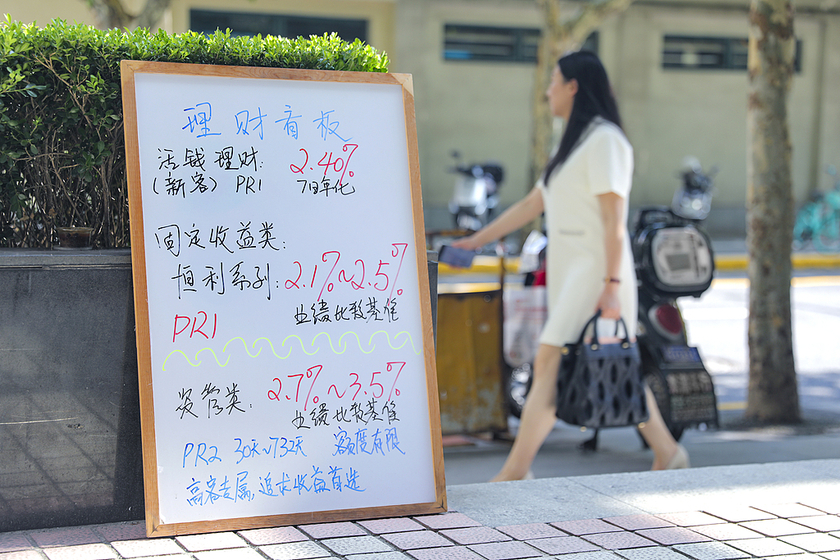 理财看板
活钱理财: 2.40%
(新客) PR1 7日年化
固定收益类:
恒利系列: 2.1%~2.5%
业绩比较基准
PR1
资管类: 2.7%~3.5%
业绩比较基准
PR2 30天~732天 额度有限
高客专属,追求收益首选